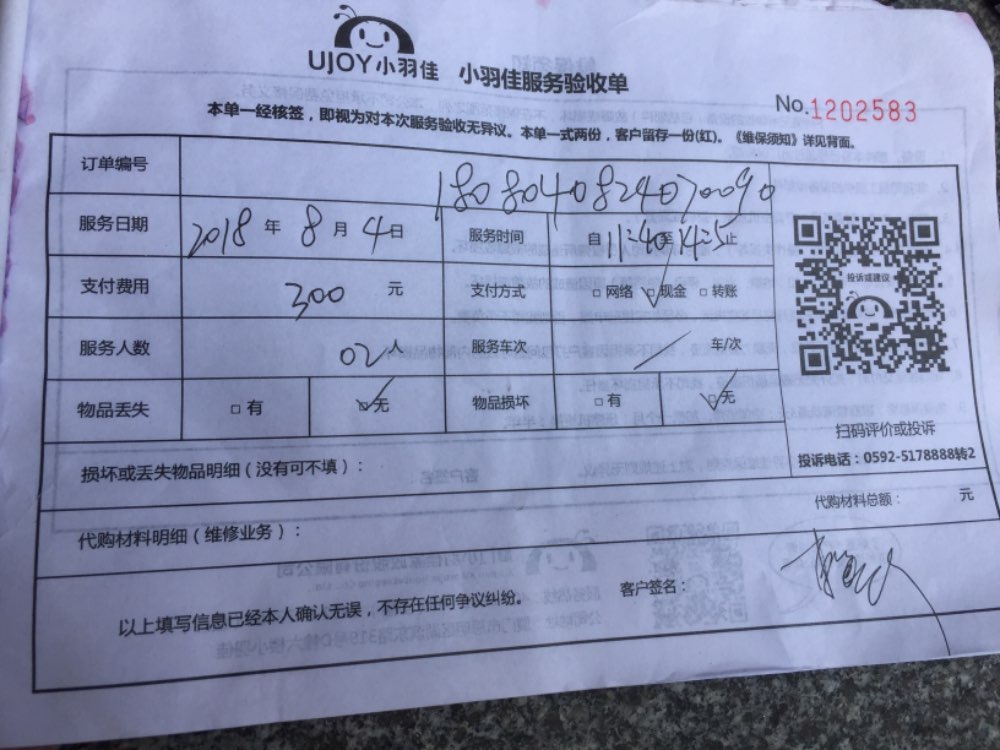 UJOY小羽佳 小羽佳服务验收单
No.1202583
本单一经核签，即视为对本次服务验收无异议。本单一式两份，客户留存一份(红)。《维保须知》详见背面。
订单编号 1808040824070090
服务日期 2018 年 8 月 4 日 服务时间 自 11:40 至 14:25 止
支付费用 300 元 支付方式 □ 网络 □ 现金 □ 转账
投诉或建议
服务人数 02 人 服务车次 / 车/次
物品丢失 □ 有 □ 无 物品损坏 □ 有 □ 无
扫码评价或投诉
投诉电话：0592-5178888转2
损坏或丢失物品明细（没有可不填）：
代购材料总额： 元
代购材料明细（维修业务）：
以上填写信息已经本人确认无误，不存在任何争议纠纷。 客户签名：